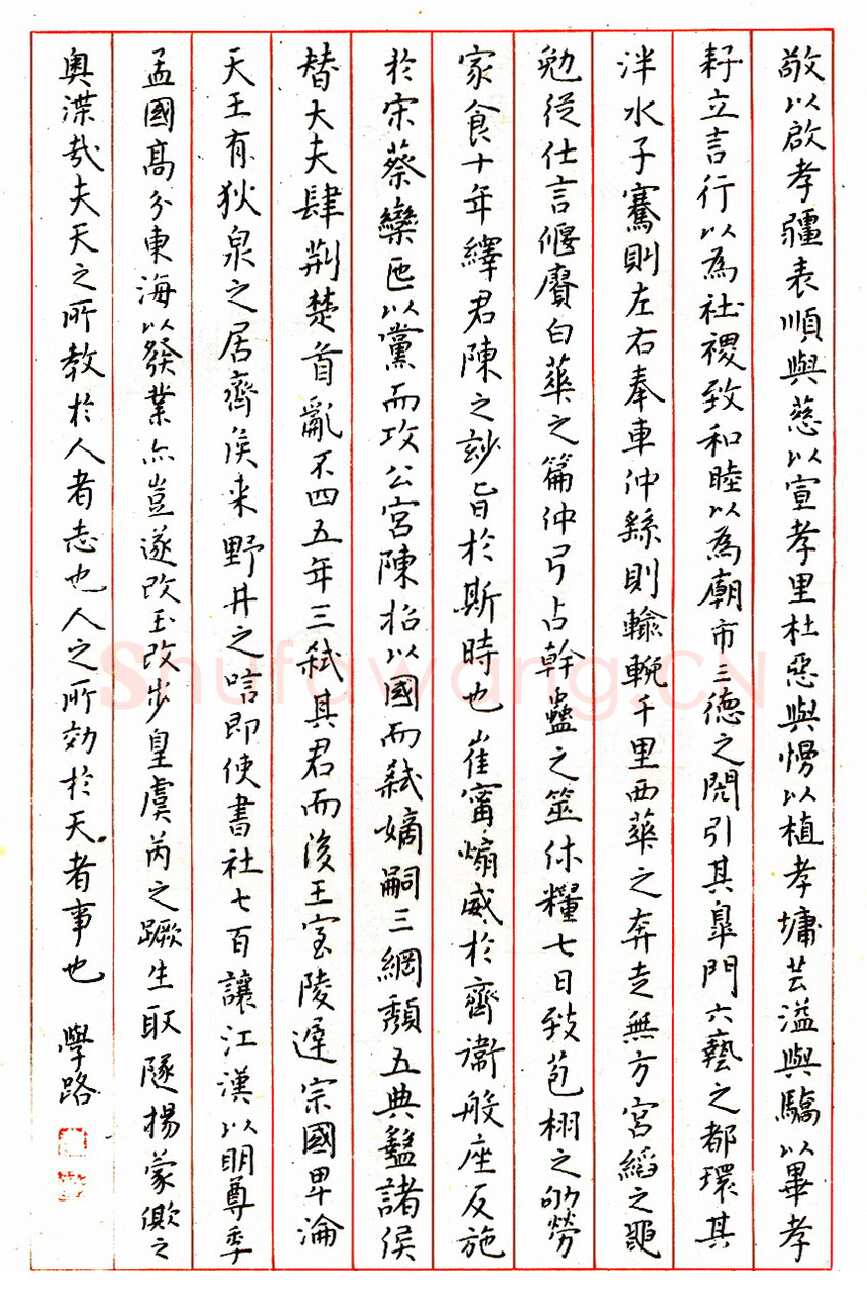 敬以啟孝疆表順與慈以宣孝里杜惡與慢以植孝墉芸溢與驕以畢孝
耔立言行以為社稷致和睦以為廟市三德之閎引其皐門六藝之都環其
泮水子騫則左右奉車仲繇則輸輓千里西華之奔走無方宮縚之黽
勉從仕言偃賡白華之篇仲弓占幹蠱之筮休糧七日致苞栩之劬勞
家食十年繹君陳之玅旨於斯時也崔甯煽威於齊衛般座反施
於宋蔡欒匜以黨而攻公宮陳招以國而弒嫡嗣三綱頹五典盭諸侯
替大夫肆荆楚首亂不四五年三弒其君而後王室陵遲宗國卑淪
天王有狄泉之居齊侯来野井之唁即使書社七百讓江漢以明尊季
孟國高分東海以發業亦豈遂改玉改步皇虞芮之蹶生耴隧揚蒙倛之
奧渫哉夫天之所教於人者志也人之所効於天者事也 學路
Shufawang.CN